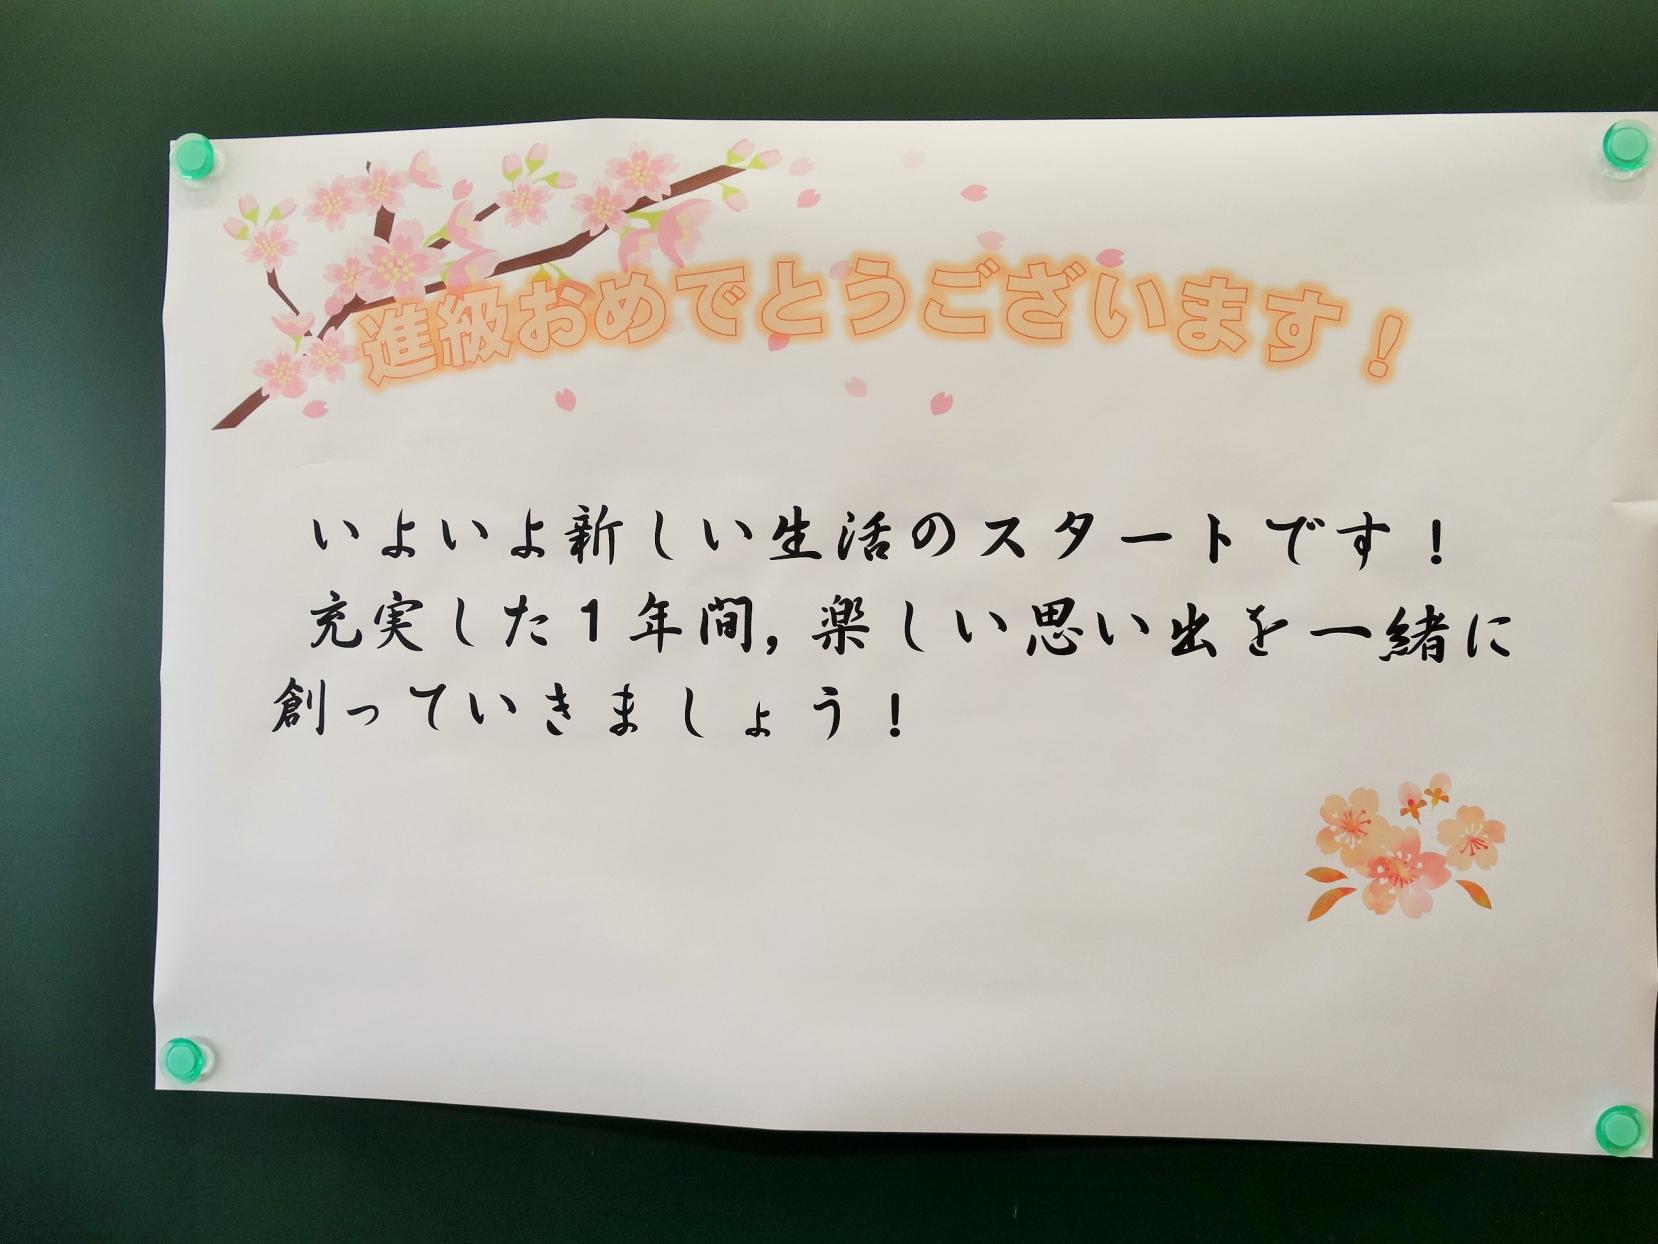 進級おめでとうございます！
いよいよ新しい生活のスタートです！
充実した１年間，楽しい思い出を一緒に
創っていきましょう！